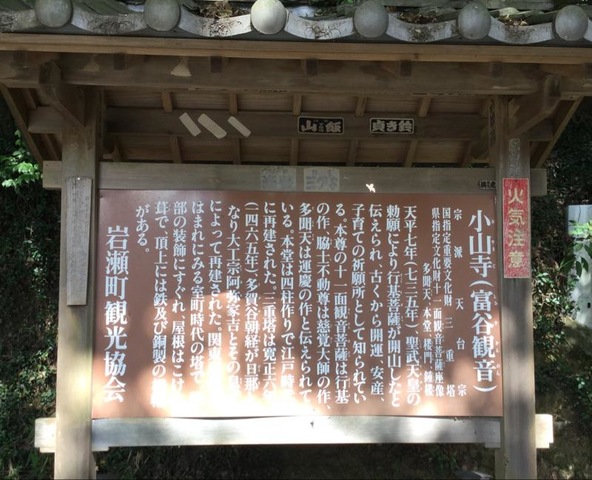 小山寺(富谷観音)
宗派 天台宗
国指定重要文化財 三重塔
県指定文化財 十一面観音菩薩座像
多聞天、本堂、楼門、鐘楼
天平七年(七三五年)、聖武天皇の
勅願により行基菩薩が開山したと
伝えられ 古くから開運、安産、
子育ての祈願所として知られてい
る。本尊の十一面観音菩薩は行基
の作、脇士不動尊は慈覚大師の作、
多聞天は運慶の作と伝えられて
いる。本堂は四柱作りで江戸時
に再建された。三重塔は寛正六年
(一四六五年)多賀谷朝経が旦那と
なり大工宗阿弥家吉とその
によって再建された。関東
はまれにみる室町時代の塔で
部の装飾にすぐれ、屋根はこけ
葺で、頂上には鉄及び銅製の
がある。
岩瀬町観光協会
火気注意